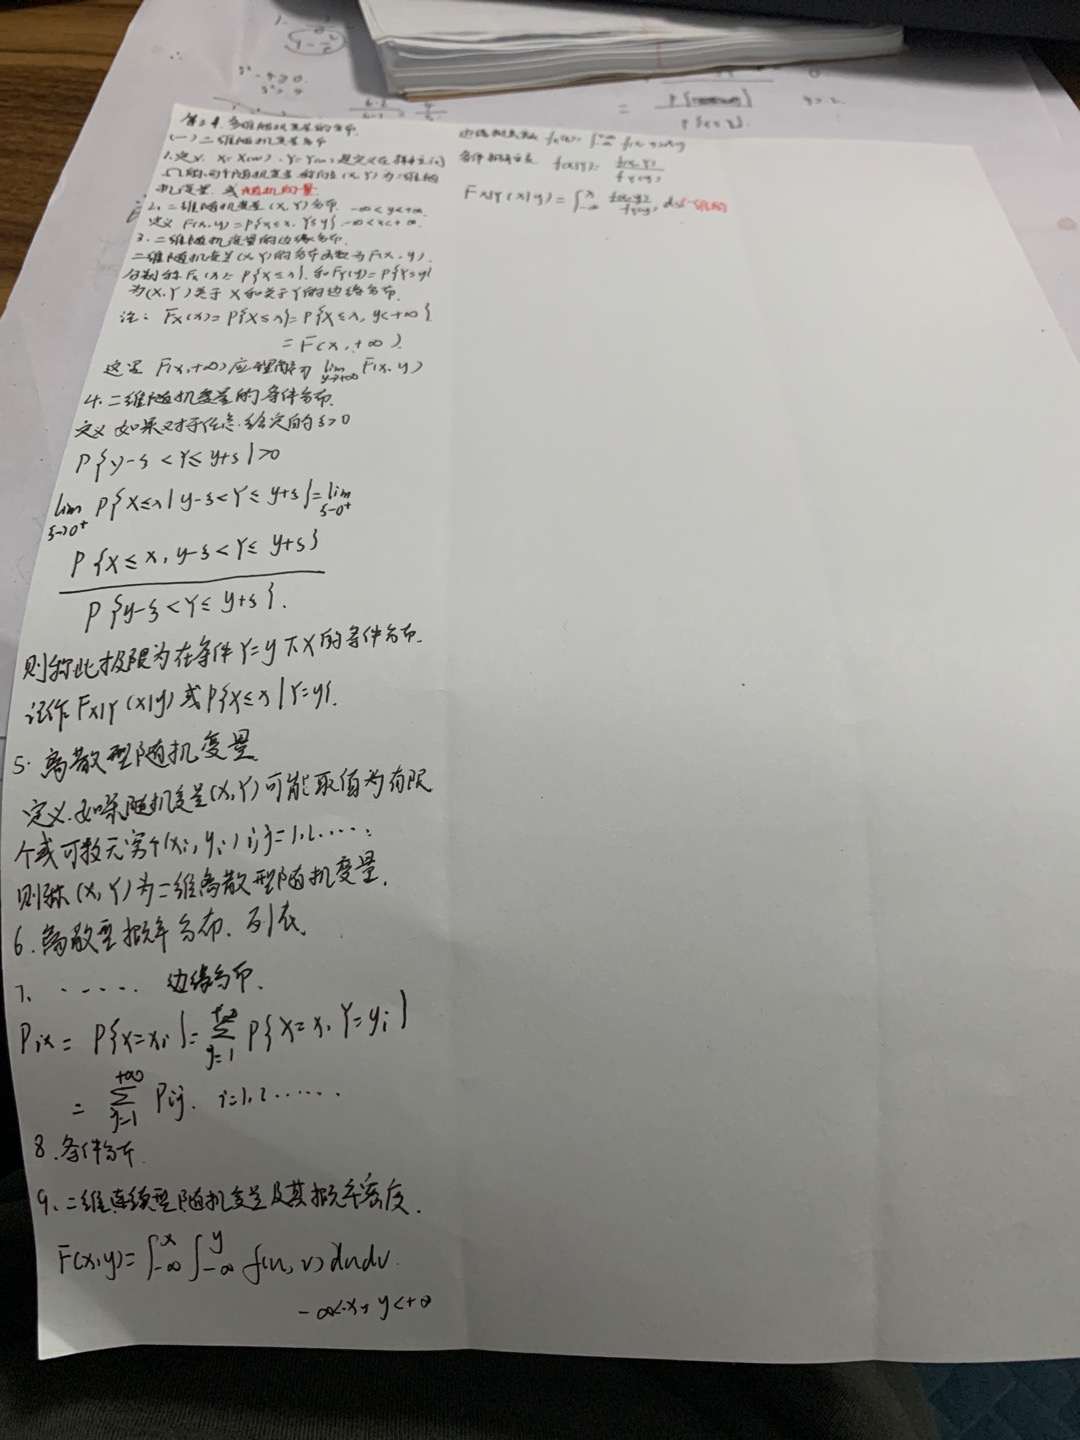 (一)二维随机变量分布
1.定义. X=X(ω), Y=Y(ω)是定义在样本空间
Ω的两个随机变量. 则向量(X,Y)为二维随
机变量. 或随机向量.
2. 二维随机变量(X,Y)分布. -∞<y<+∞
定义 F(x,y)=P{X≤x, Y≤y}. -∞<x<+∞.
3. 二维随机变量的边缘分布.
二维随机变量(X,Y)的分布函数为F(x,y).
分别称Fx(x)=P{X≤x}.和FY(y)=P{Y≤y}
为(X,Y)关于X和关于Y的边缘分布.
注: Fx(x)=P{X≤x}=P{X≤x, y<+∞}
=F(x,+∞).
这里 F(x,+∞)应理解为 lim y→+∞ F(x,y)
4.二维随机变量的条件分布.
定义 如果对于任意给定的ε>0
P{y-ε<Y≤y+ε}>0
lim ε→0⁺ P{X≤x|y-ε<Y≤y+ε}=lim ε→0⁺
P{X≤x, y-ε<Y≤y+ε}
P{y-ε<Y≤y+ε}.
则称此极限为在条件Y=y下X的条件分布.
记作FX|Y(x|y)或P{X≤x|Y=y}.
5. 离散型随机变量
定义.如果随机变量(X,Y)可能取值为有限
个或可数无穷个(xi,yi) i,j=1,2.....
则称(X,Y)为二维离散型随机变量.
6.离散型概率分布. 列表.
7. ..... 边缘分布.
Pix = P{X=xi}=∑ j=1 +∞ P{X=x, Y=yi}
= ∑ j=1 +∞ Pij. i=1,2......
8.条件分布.
9.二维连续型随机变量及其概率密度.
F(x,y)=∫-∞^x ∫-∞^y f(u,v)dudv.
-∞<x,y<+∞
条件概率密度 f(x|y)= f(x,y)/fY(y)
FX|Y(x|y)=∫-∞^x f(x,y)/fY(y) dx